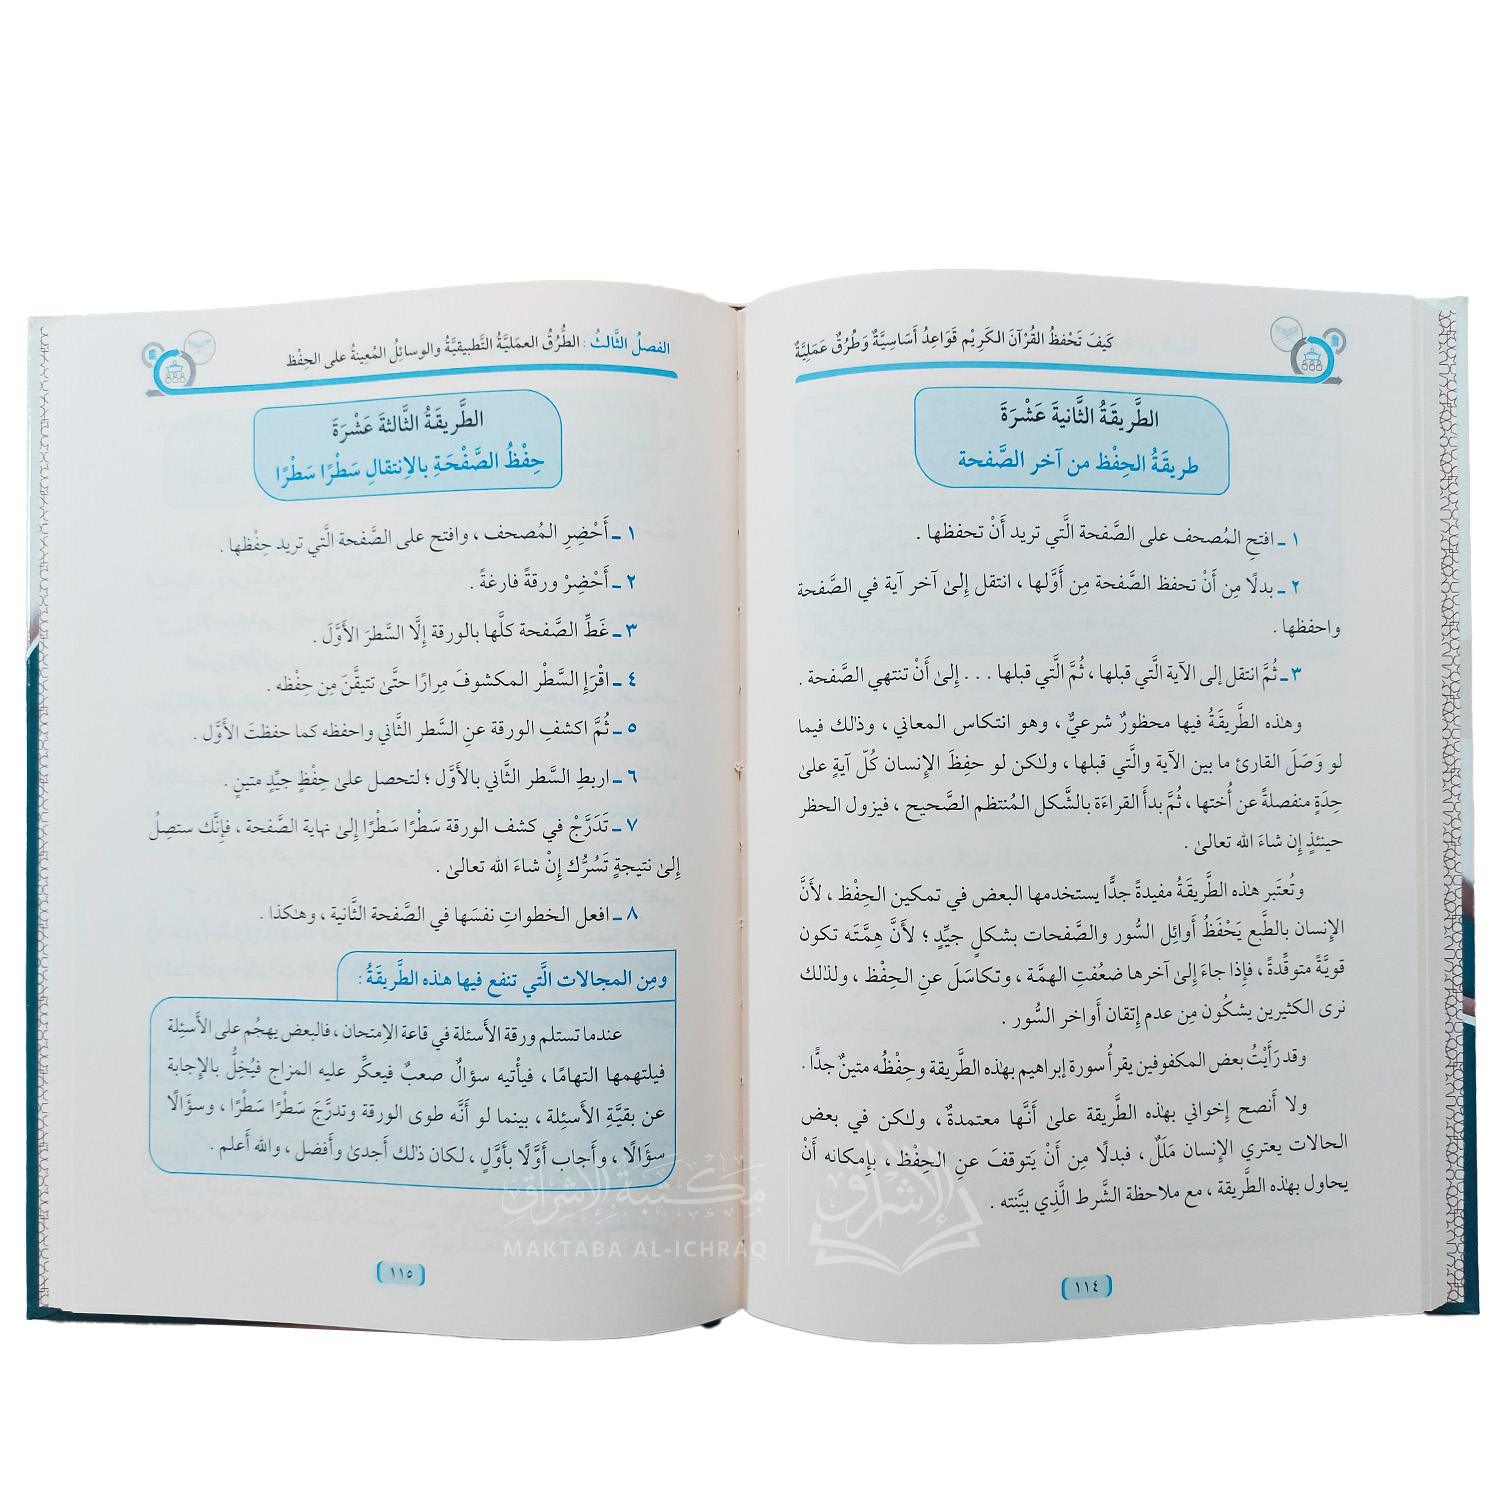 كَيفَ تَحْفظُ القُرْآنَ الكَرِيْم قَوَاعِدُ أَسَاسِيَّةٌ وَطُرُقٌ عَمَلِيَّةٌ
الطَّريقَةُ الثَّانيةَ عَشْرَةَ
طريقَةُ الحِفْظ من آخر الصَّفحة
١ ـ افتحِ المُصحف على الصَّفحة الَّتي تريد أَنْ تحفظها .
٢ ـ بدلًا مِن أَنْ تحفظ الصَّفحة مِن أَوَّلها ، انتقل إِلىٰ آخر آية في الصَّفحة
واحفظها .
٣ ـ ثُمَّ انتقل إلى الآية الَّتي قبلها ، ثُمَّ الَّتي قبلها . . . إِلىٰ أَنْ تنتهي الصَّفحة .
وهٰذه الطَّريقَةُ فيها محظورٌ شرعيٌّ ، وهو انتكاس المعاني ، وذٰلك فيما
لو وَصَلَ القارئ ما بين الآية والَّتي قبلها ، ولٰكن لو حفِظَ الإِنسان كُلّ آيةٍ علىٰ
حِدَةٍ منفصلةً عن أُختها ، ثُمَّ بدأَ القراءَة بالشَّكل المُنتظم الصَّحيح ، فيزول الحظر
حينئذٍ إن شاءَ الله تعالىٰ .
وتُعتَبر هٰذه الطَّريقَةُ مفيدةً جدًّا يستخدمها البعض في تمكين الحِفْظ ، لأَنَّ
الإِنسان بالطَّبع يَحْفَظُ أَوائل السُّور والصَّفحات بشكلٍ جيِّدٍ ؛ لأَنَّ هِمَّتَه تكون
قويَّةً متوقِّدةً ، فإِذا جاءَ إِلىٰ آخرها ضعُفتِ الهمَّة ، وتكاسَلَ عنِ الحِفْظ ، ولذٰلك
نرى الكثيرين يشكُون مِن عدم إِتقان أَواخر السُّور .
وقد رَأَيْتُ بعض المكفوفين يقرأُ سورة إبراهيم بهٰذه الطَّريقة وحِفْظُه متينٌ جدًّا .
ولا أَنصح إِخواني بهٰذه الطَّريقة علىٰ أَنَّها معتمدةٌ ، ولٰكن في بعض
الحالات يعتري الإِنسان مَلَلٌ ، فبدلًا مِن أَنْ يَتوقفَ عنِ الحِفْظ ، بإِمكانه أَنْ
يحاول بهٰذه الطَّريقة ، مع ملاحظة الشَّرط الَّذِي بيَّنته .
١١٤
الفصلُ الثَّالثُ : الطُّرُقُ العمَليَّةُ التَّطبيقيَّةُ والوسائِلُ المُعينةُ على الحِفْظ
الطَّريقَةُ الثَّالثةَ عَشْرَةَ
حِفْظُ الصَّفْحَةِ بالاِنتقالِ سَطْرًا سَطْرًا
١ ـ أَحْضِرِ المُصحف ، وافتح على الصَّفحة الَّتي تريد حِفْظها .
٢ ـ أَحْضِرْ ورقةً فارغةً .
٣ ـ غَطِّ الصَّفحة كلَّها بالورقة إِلَّا السَّطرَ الأَوَّلَ .
٤ ـ اقْرَإِ السَّطْر المكشوفَ مِرارًا حتَّىٰ تتيقَّنَ مِن حِفْظه .
٥ ـ ثُمَّ اكشفِ الورقة عنِ السَّطر الثَّاني واحفظه كما حفظتَ الأَوَّل .
٦ ـ اربطِ السَّطر الثَّاني بالأَوَّل ؛ لتحصل علىٰ حِفْظٍ جيِّدٍ متينٍ .
٧ ـ تَدَرَّجْ في كشف الورقة سَطْرًا سَطْرًا إِلىٰ نهاية الصَّفحة ، فإِنَّك ستصِلُ
إِلىٰ نتيجةٍ تَسُرُّك إِنْ شاءَ الله تعالىٰ .
٨ ـ افعل الخطواتِ نفسَها في الصَّفحة الثَّانية ، وهٰكذا .
ومِن المجالات الَّتي تنفع فيها هٰذه الطَّريقَةُ :
عندما تستلم ورقة الأَسئلة في قاعة الاِمتحان ، فالبعض يهجُم على الأَسئِلة
فيلتهمها التهامًا ، فيأْتيه سؤالٌ صعبٌ فيعكِّر عليه المزاج فيُخِلُّ بالإِجابة
عن بقيَّةِ الأَسئِلة ، بينما لو أَنَّه طوى الورقة وتدرَّجَ سَطْرًا سَطْرًا ، وسؤَالًا
سؤَالًا ، وأَجاب أَوَّلًا بأَوَّلٍ ، لكان ذٰلك أَجدىٰ وأَفضل ، والله أَعلم .
١١٥
مكتبة الإشراق
MAKTABA AL-ICHRAQ
الإشراق